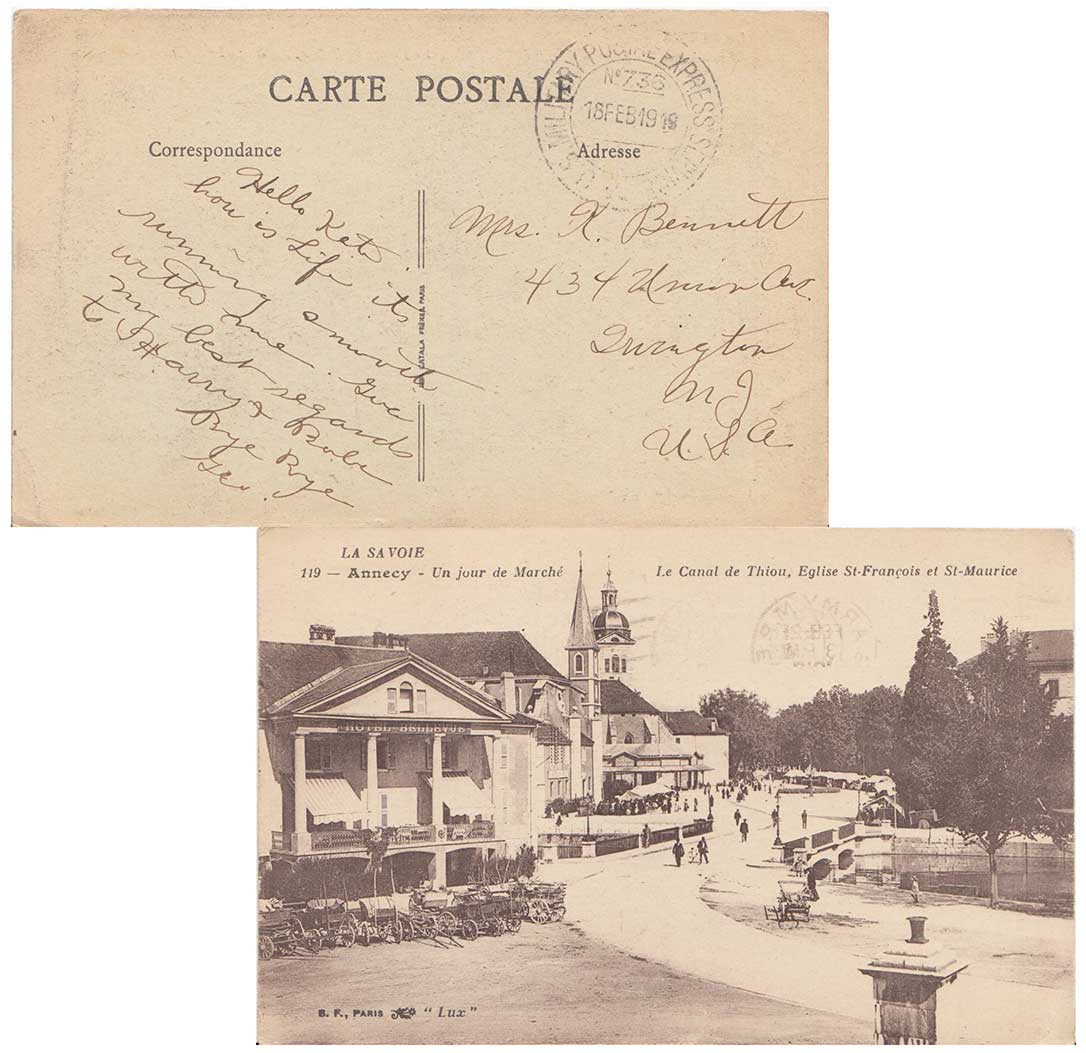 CARTE POSTALE
U.S. MILITARY POSTAL EXPRESS SERVICE
No 736
18 FEB 1919
Correspondance
Adresse
Hello Kat.
how is Life its
running smooth
with me. Give
my best regards
to Harry &
Bye Bye
Geo.
CATALA FRÈRES, PARIS
Mrs. K. Bennett
434 Union Ave.
Irvington
N J
U.S.A.
LA SAVOIE
119 — Annecy - Un jour de Marché
Le Canal de Thiou, Eglise St-François et St-Maurice
HOTEL BELLEVUE
B. F., PARIS "Lux"